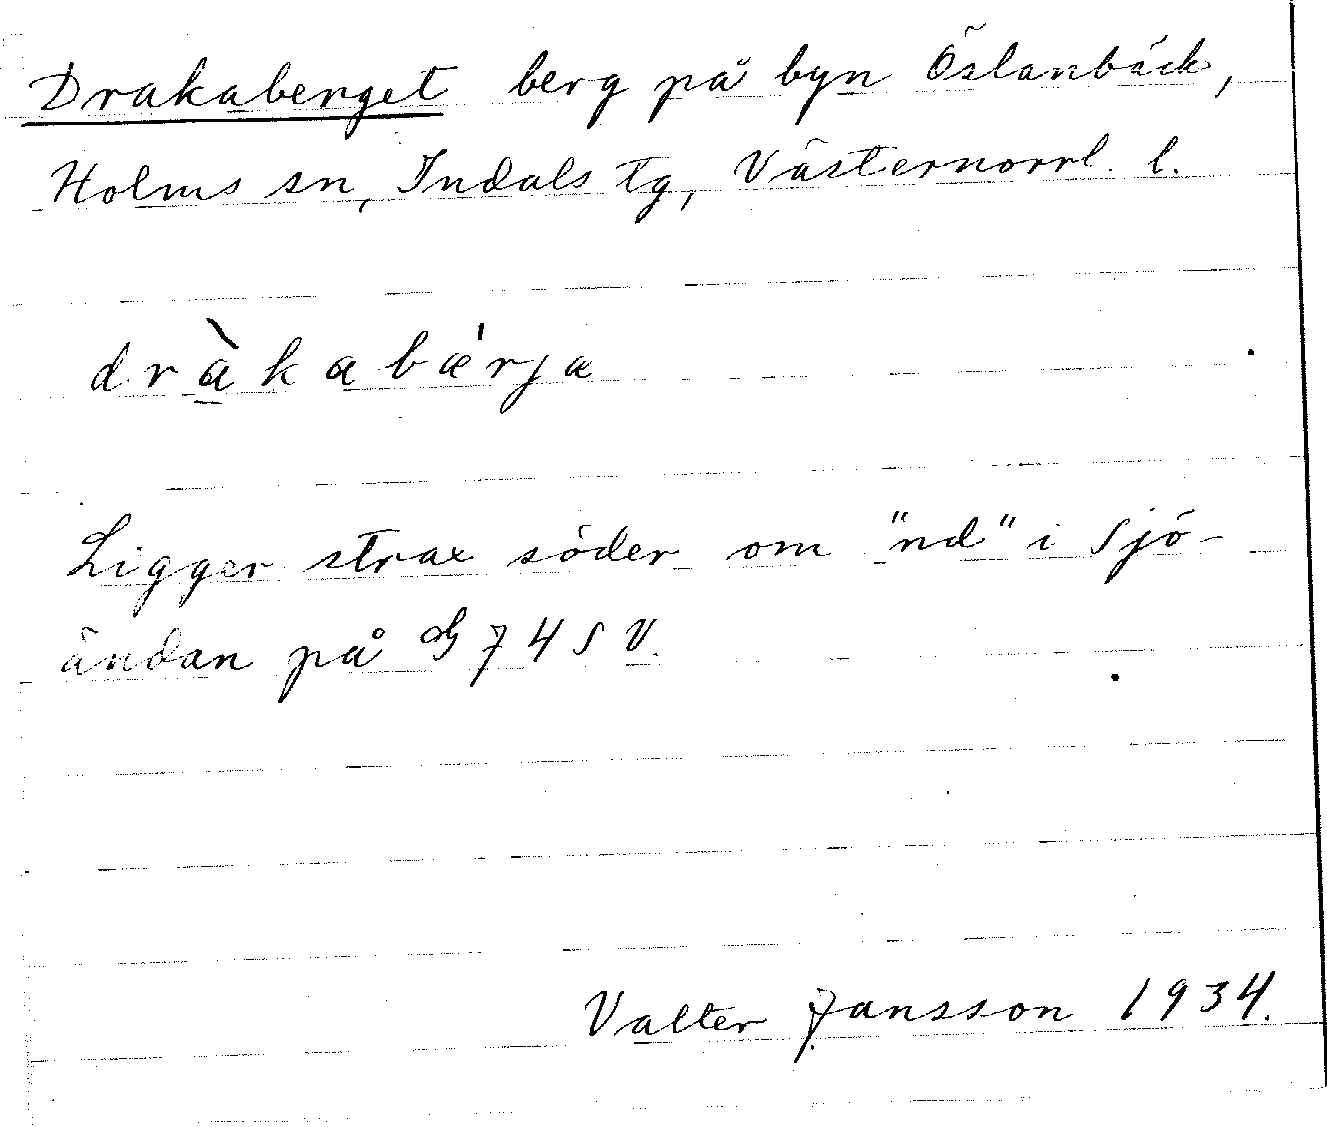 Drakaberget berg på byn Öslanbäck,
Holms sn, Indals tg, Västernorrl. l.
dràkabǽrjæ
Ligger strax söder om "nd" i Sjö-
ändan på G 74 SV.
Valter Jansson 1934.